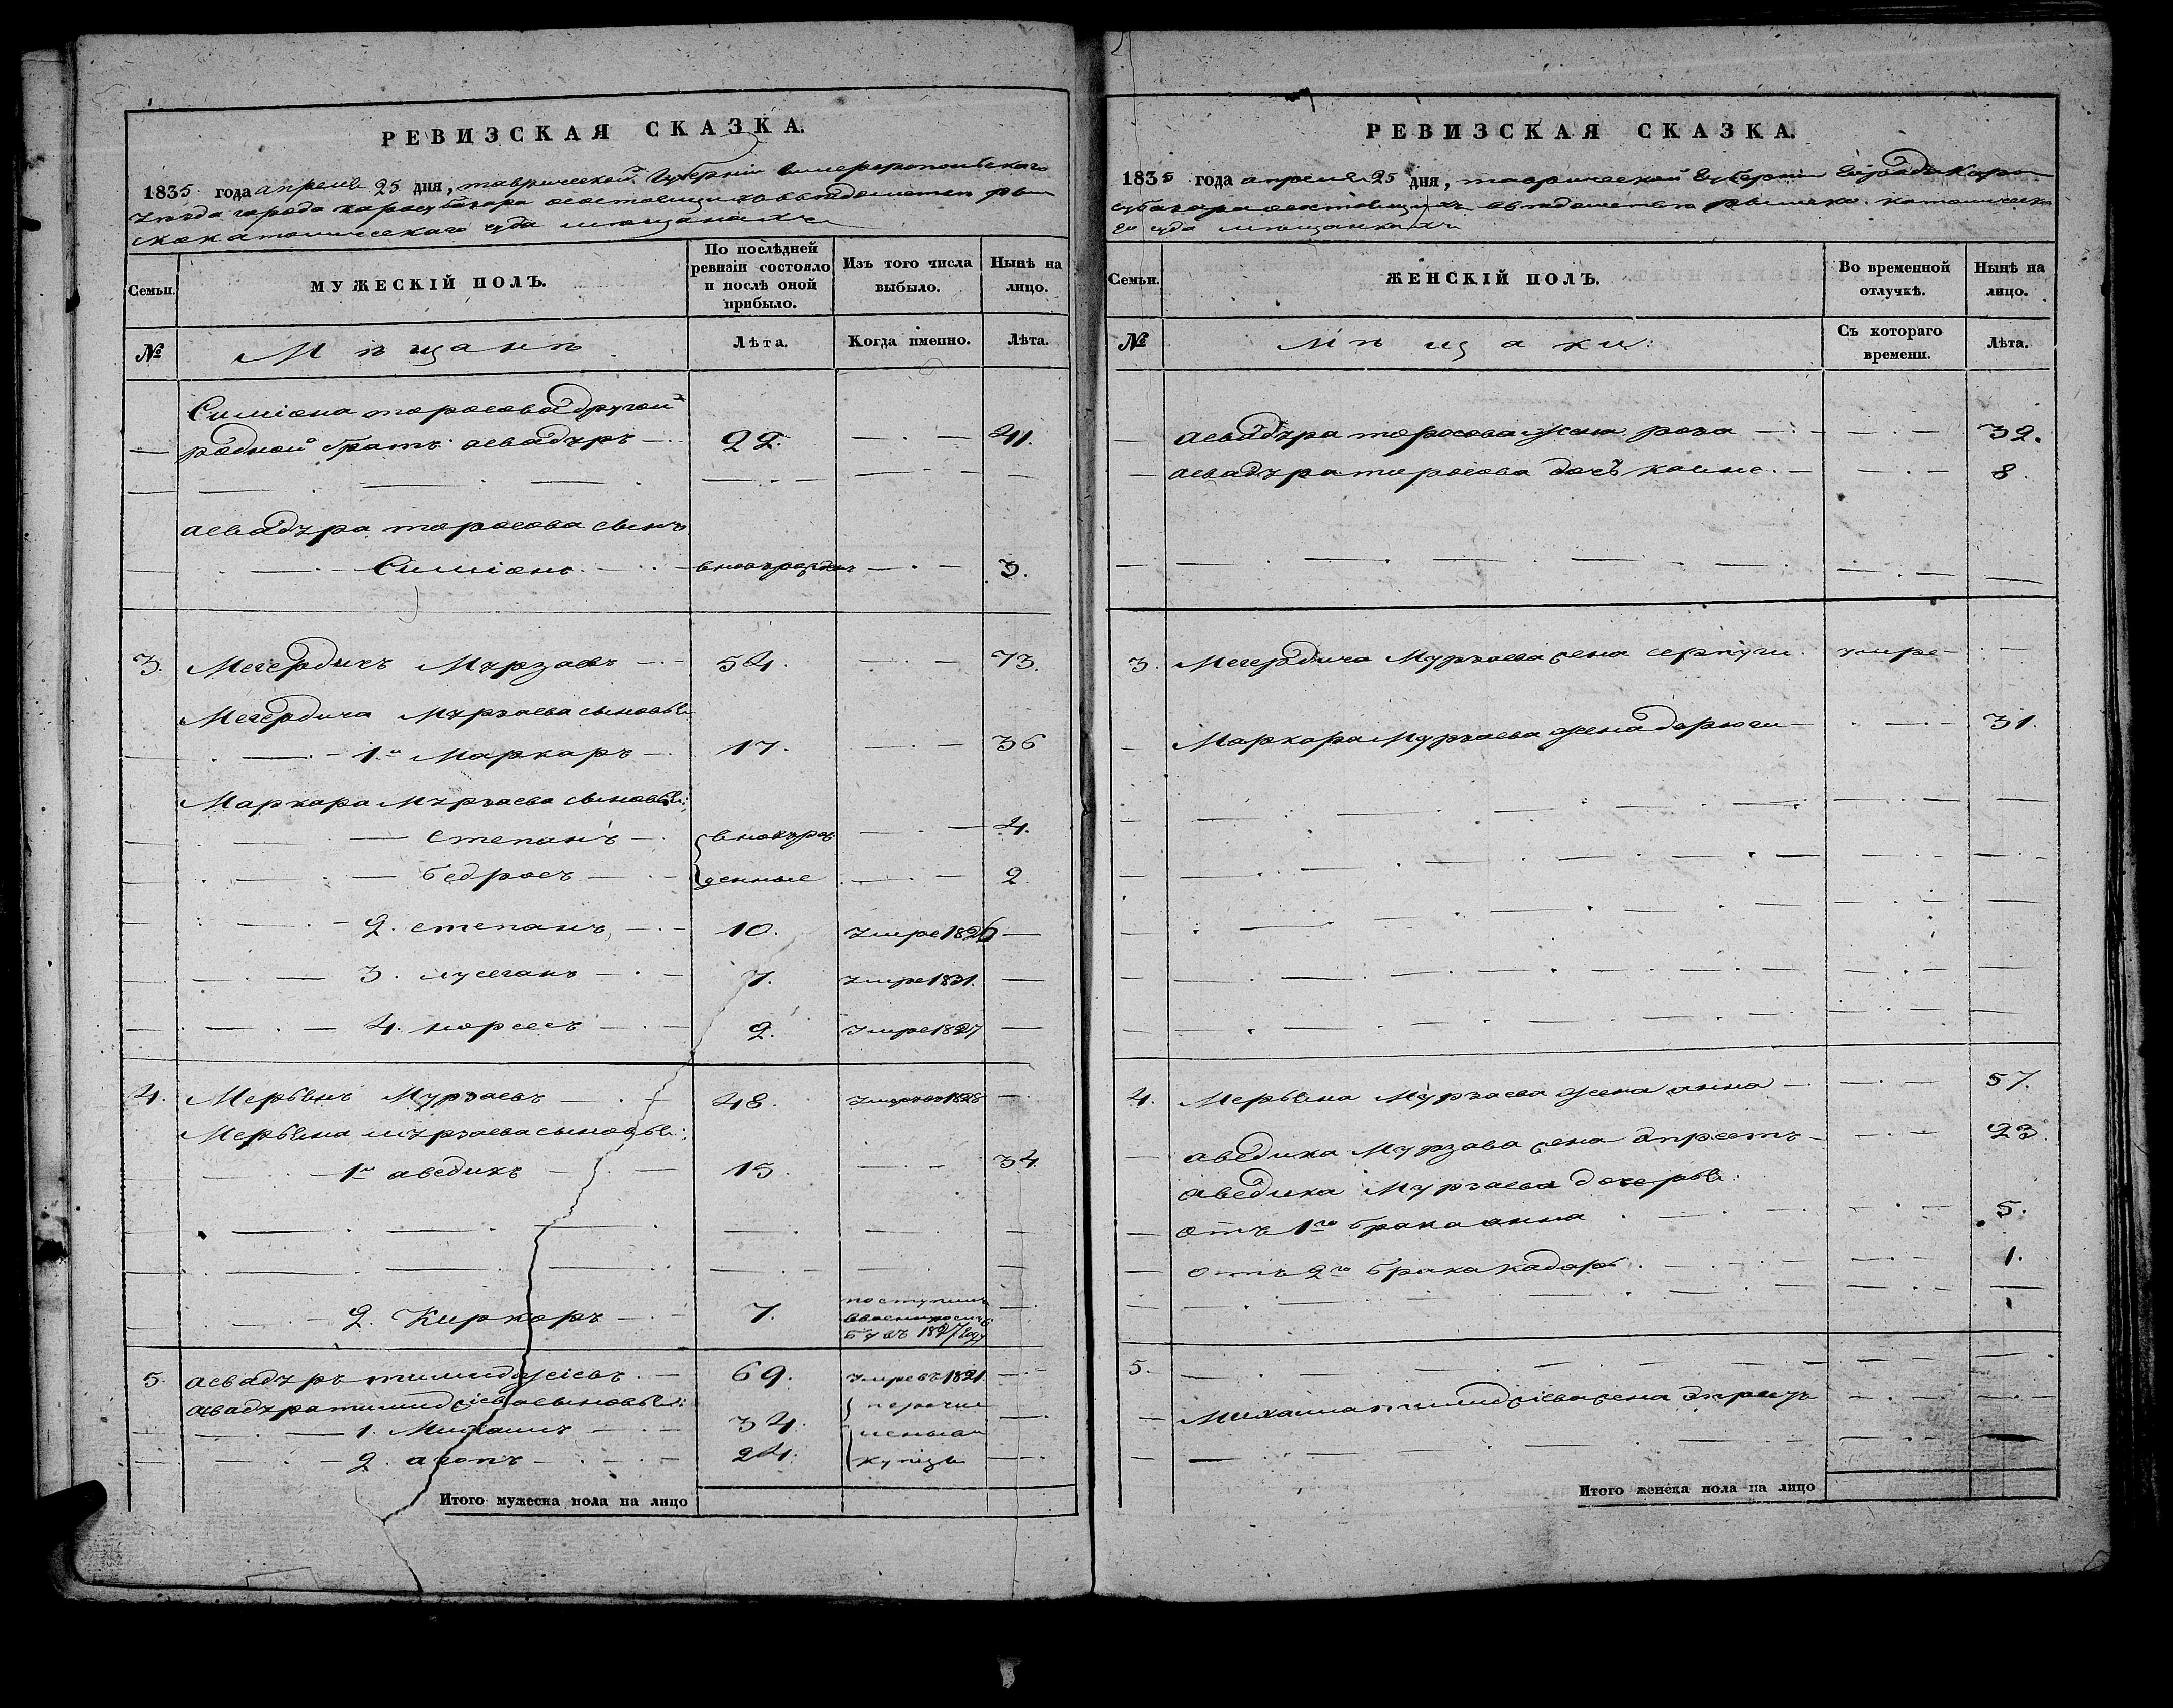 РЕВИЗСКАЯ СКАЗКА.
1835 года апреля 25 дня, таврической Губерніи Симферопольскаго
уѣзда города карасубазара состоящихъ въ вѣдомствѣ рым
скокатолическаго суда мещанахъ
Семьи.
МУЖЕСКІЙ ПОЛЪ.
По послѣдней ревизіи состояло и послѣ оной прибыло.
Изъ того числа выбыло.
Нынѣ на лицо.
№
Мѣщанѣ
Лѣта.
Когда именно.
Лѣта.
Симіона торосова другой
родной братъ асвадуръ 22. 41.
асвадура торосова сынъ
Симіонъ вновърожден 3.
3. Мегердичъ Мурзаевъ 54. 73.
Мегердича Мурзаева сыновья
1й Маркаръ 17. 36
Маркара Мурзаева сыновья:
степанъ вновьрож 4.
бедросъ денные 2.
2. степанъ 10. умре 1826
3. лусеганъ 7. умре 1831.
4. норсесъ 2. умре 1827
4. Мерьенъ Мурзаевъ 48. умре въ 1828
Мерьена мурзаева сыновья:
1й аведикъ 15. 34.
2. Киркоръ 7. поступилъ
въ 1827 году
5. асвадуръ 69. умре въ 1821.
асвадура сыновья:
1. Михаилъ 34. перечис
2. агопъ 24. купцы
Итого мужеска пола на лицо
РЕВИЗСКАЯ СКАЗКА.
1835 года апреля 25 дня, таврической Губерніи города Кара
субазара состоящихъ въ вѣдомствѣ рымско католическа
го суда мещанкахъ
Семьи.
ЖЕНСКІЙ ПОЛЪ.
Во временной отлучкѣ.
Нынѣ на лицо.
№
Съ котораго времени.
Лѣта.
асвадура торосова жена роза 32.
асвадура торосова дочь 8.
3. Мегердича Мурзаева жена серпуги умре
Маркара Мурзаева жена 31.
4. Мерьена Мурзаева жена анна 57.
аведика Мурзава жена 23.
аведика Мурзаева дочерье:
отъ 1го брака анна 5.
отъ 2го брака 1.
5.
Михаила жена
Итого женска пола на лицо